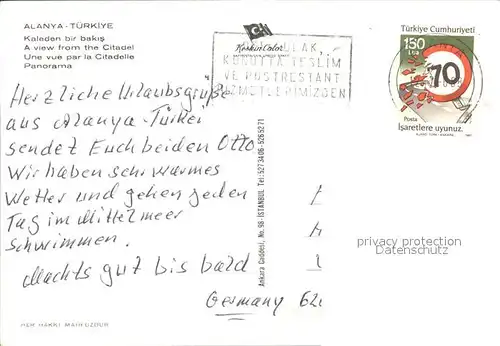 ALANYA - TÜRKİYE
Kaleden bir bakış
A view from the Citadel
Une vue par la Citadelle
Panorama
Keskin Color
ULAK,
KUTUYA TESLİM
VE POSTRESTANT
HİZMETLERİMİZDEN
Türkiye Cumhuriyeti
150
LİRA
70
Posta
İşaretlere uyunuz.
1987
Herzliche Urlaubsgrüße
aus Alanya-Türkei
sendet Euch beiden Otto
Wir haben sehr warmes
Wetter und gehen jeden
Tag im Mittelmeer
schwimmen.
Machts gut bis bald
Germany 62
Ankara Caddesi, No. 98 - İSTANBUL Tel: 527 34 06 - 526 52 71
privacy protection
Datenschutz
HER HAKKI MAHFUZDUR